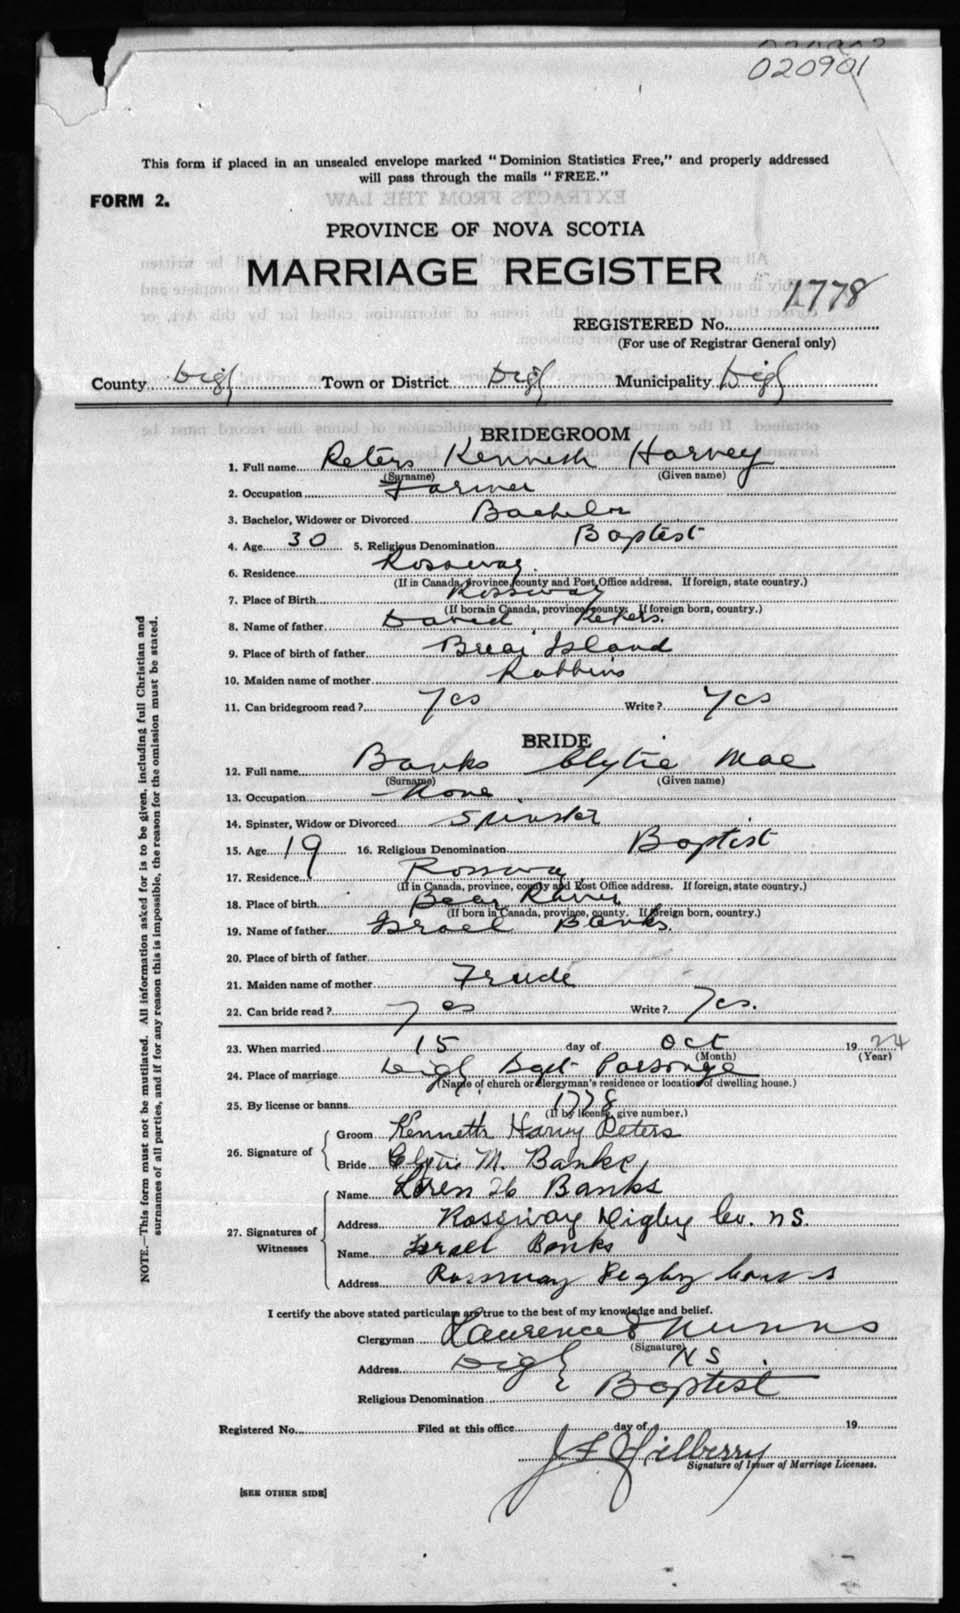 020901
This form if placed in an unsealed envelope marked "Dominion Statistics Free," and properly addressed
will pass through the mails "FREE."
FORM 2.
PROVINCE OF NOVA SCOTIA
MARRIAGE REGISTER
1778
REGISTERED No.
(For use of Registrar General only)
County Digby Town or District Digby Municipality Digby
BRIDEGROOM
1. Full name Peters Kenneth Harvey
(Surname) (Given name)
2. Occupation Farmer
3. Bachelor, Widower or Divorced Bachelor
4. Age 30 5. Religious Denomination Baptist
6. Residence Rossway
(If in Canada, province, county and Post Office address. If foreign, state country.)
7. Place of Birth Rossway
(If born in Canada, province, county. If foreign born, country.)
8. Name of father David Peters.
9. Place of birth of father Briar Island
10. Maiden name of mother Robbins
11. Can bridegroom read? Yes Write? Yes
BRIDE
12. Full name Banks Clytie Mae
(Surname) (Given name)
13. Occupation None
14. Spinster, Widow or Divorced Spinster
15. Age 19 16. Religious Denomination Baptist
17. Residence Rossway
(If in Canada, province, county and Post Office address. If foreign, state country.)
18. Place of birth Bear River
(If born in Canada, province, county. If foreign born, country.)
19. Name of father Israel Banks.
20. Place of birth of father
21. Maiden name of mother Trude
22. Can bride read? Yes Write? Yes.
23. When married 15 day of Oct 1924
(Month) (Year)
24. Place of marriage Digby Bapt Parsonge
(Name of church or clergyman's residence or location of dwelling house.)
25. By license or banns 1778
(If by license, give number.)
26. Signature of
Groom Kenneth Harvey Peters
Bride Clytie M. Banks
27. Signatures of Witnesses
Name Loren H Banks
Address Rossway Digby Co. N S.
Name Israel Banks
Address Rossway Digby Co N S
I certify the above stated particulars are true to the best of my knowledge and belief.
Clergyman Laurence Nunns
(Signature)
Address Digby N S.
Religious Denomination Baptist
Registered No. Filed at this office day of 19
Signature of Issuer of Marriage Licenses.
[SEE OTHER SIDE]
NOTE.—This form must not be mutilated. All information asked for is to be given, including full Christian and
surnames of all parties, and if for any reason this is impossible, the reason for the omission must be stated.